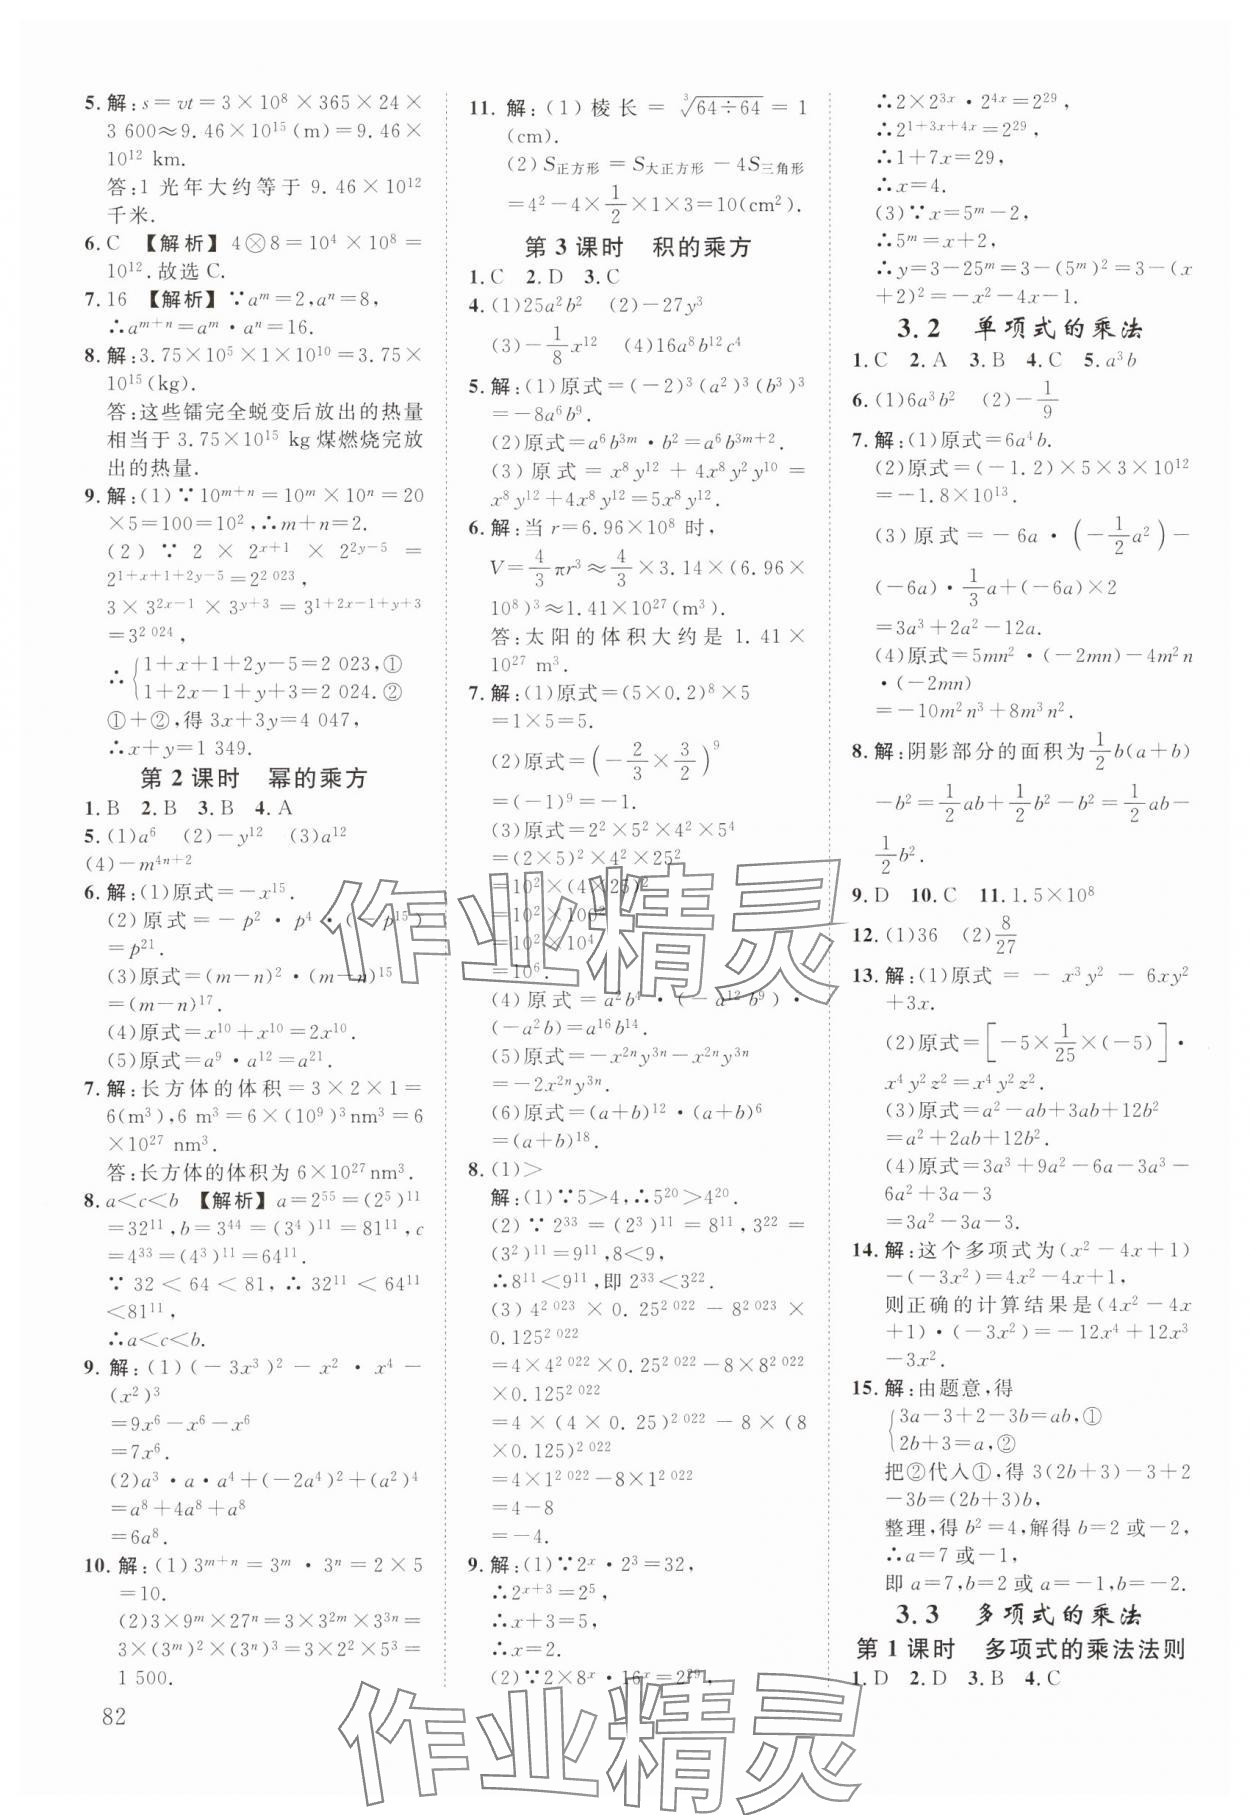 5. 解:s=vt=3×10⁸×365×24×
3 600≈9.46×10¹⁵(m)=9.46×
10¹² km.
答:1 光年大约等于 9.46×10¹²
千米.
6. C 【解析】4⊗8=10⁴×10⁸=
10¹².故选C.
7. 16 【解析】∵aᵐ=2,aⁿ=8,
∴aᵐ⁺ⁿ=aᵐ·aⁿ=16.
8. 解:3.75×10⁵×1×10¹⁰=3.75×
10¹⁵(kg).
答:这些镭完全蜕变后放出的热量
相当于 3.75×10¹⁵ kg煤燃烧完放
出的热量.
9. 解:(1)∵10ᵐ⁺ⁿ=10ᵐ×10ⁿ=20
×5=100=10²,∴m+n=2.
(2)∵2×2^{x+1}×2^{2y-5}=
2^{1+x+1+2y-5}=2^{2 023},
3×3^{2x-1}×3^{y+3}=3^{1+2x-1+y+3}
=3^{2 024},
∴{1+x+1+2y-5=2 023,①
1+2x-1+y+3=2 024.②
①+②,得 3x+3y=4 047,
∴x+y=1 349.
第2课时 幂的乘方
1. B 2. B 3. B 4. A
5. (1)a⁶ (2)-y¹² (3)a¹²
(4)-m^{4n+2}
6. 解:(1)原式=-x¹⁵.
(2)原式=-p²·p⁴·(-p¹⁵)
=p²¹.
(3)原式=(m-n)²·(m-n)¹⁵
=(m-n)¹⁷.
(4)原式=x¹⁰+x¹⁰=2x¹⁰.
(5)原式=a⁹·a¹²=a²¹.
7. 解:长方体的体积=3×2×1=
6(m³),6 m³=6×(10⁹)³nm³=6
×10²⁷ nm³.
答:长方体的体积为 6×10²⁷nm³.
8. a<c<b 【解析】a=2⁵⁵=(2⁵)¹¹
=32¹¹,b=3⁴⁴=(3⁴)¹¹=81¹¹,c
=4³³=(4³)¹¹=64¹¹.
∵32<64<81,∴32¹¹<64¹¹
<81¹¹,
∴a<c<b.
9. 解:(1)(-3x³)²-x²·x⁴-
(x²)³
=9x⁶-x⁶-x⁶
=7x⁶.
(2)a³·a·a⁴+(-2a⁴)²+(a²)⁴
=a⁸+4a⁸+a⁸
=6a⁸.
10. 解:(1)3ᵐ⁺ⁿ=3ᵐ·3ⁿ=2×5
=10.
(2)3×9ᵐ×27ⁿ=3×3^{2m}×3^{3n}=
3×(3ᵐ)²×(3ⁿ)³=3×2²×5³=
1 500.
82
11. 解:(1)棱长=∛(64÷64)=1
(cm).
(2)S正方形=S大正方形-4S三角形
=4²-4×1/2×1×3=10(cm²).
第3课时 积的乘方
1. C 2. D 3. C
4. (1)25a²b² (2)-27y³
(3)-1/8x¹² (4)16a⁸b¹²c⁴
5. 解:(1)原式=(-2)³(a²)³(b³)³
=-8a⁶b⁹.
(2)原式=a⁶b^{3m}·b²=a⁶b^{3m+2}.
(3)原式=x⁸y¹²+4x⁸y²y¹⁰=
x⁸y¹²+4x⁸y¹²=5x⁸y¹².
6. 解:当 r=6.96×10⁸ 时,
V=4/3πr³≈4/3×3.14×(6.96×
10⁸)³≈1.41×10²⁷(m³).
答:太阳的体积大约是 1.41×
10²⁷ m³.
7. 解:(1)原式=(5×0.2)⁸×5
=1×5=5.
(2)原式=(-2/3×3/2)⁹
=(-1)⁹=-1.
(3)原式=2²×5²×4²×5⁴
=(2×5)²×4²×25²
=10²×(4×25)²
=10²×100²
=10²×10⁴
=10⁶.
(4)原式=a²b⁴·(-a¹²b⁹)·
(-a²b)=a¹⁶b¹⁴.
(5)原式=-x^{2n}y^{3n}-x^{2n}y^{3n}
=-2x^{2n}y^{3n}.
(6)原式=(a+b)¹²·(a+b)⁶
=(a+b)¹⁸.
8. (1)>
解:(1)∵5>4,∴5²⁰>4²⁰.
(2)∵2³³=(2³)¹¹=8¹¹,3²²=
(3²)¹¹=9¹¹,8<9,
∴8¹¹<9¹¹,即 2³³<3²².
(3)4^{2 023}×0.25^{2 022}-8^{2 023}×
0.125^{2 022}
=4×4^{2 022}×0.25^{2 022}-8×8^{2 022}
×0.125^{2 022}
=4×(4×0.25)^{2 022}-8×(8
×0.125)^{2 022}
=4×1^{2 022}-8×1^{2 022}
=4-8
=-4.
9. 解:(1)∵2ˣ·2³=32,
∴2^{x+3}=2⁵,
∴x+3=5,
∴x=2.
(2)∵2×8ˣ·16ˣ=2²⁹,
∴2×2^{3x}·2^{4x}=2²⁹,
∴2^{1+3x+4x}=2²⁹,
∴1+7x=29,
∴x=4.
(3)∵x=5ᵐ-2,
∴5ᵐ=x+2,
∴y=3-25ᵐ=3-(5ᵐ)²=3-(x
+2)²=-x²-4x-1.
3.2 单项式的乘法
1. C 2. A 3. B 4. C 5. a³b
6. (1)6a³b² (2)-1/9
7. 解:(1)原式=6a⁴b.
(2)原式=(-1.2)×5×3×10¹²
=-1.8×10¹³.
(3)原式=-6a·(-1/2a²)-
(-6a)·1/3a+(-6a)×2
=3a³+2a²-12a.
(4)原式=5mn²·(-2mn)-4m²n
·(-2mn)
=-10m²n³+8m³n².
8. 解:阴影部分的面积为1/2b(a+b)
-b²=1/2ab+1/2b²-b²=1/2ab-
1/2b².
9. D 10. C 11. 1.5×10⁸
12. (1)36 (2)8/27
13. 解:(1)原式=-x³y²-6xy²
+3x.
(2)原式=[-5×1/25×(-5)]·
x⁴y²z²=x⁴y²z².
(3)原式=a²-ab+3ab+12b²
=a²+2ab+12b².
(4)原式=3a³+9a²-6a-3a³-
6a²+3a-3
=3a²-3a-3.
14. 解:这个多项式为(x²-4x+1)
-(-3x²)=4x²-4x+1,
则正确的计算结果是(4x²-4x
+1)·(-3x²)=-12x⁴+12x³
-3x².
15. 解:由题意,得
{3a-3+2-3b=ab,①
2b+3=a,②
把②代入①,得 3(2b+3)-3+2
-3b=(2b+3)b,
整理,得 b²=4,解得 b=2 或-2,
∴a=7 或-1,
即 a=7,b=2 或 a=-1,b=-2.
3.3 多项式的乘法
第1课时 多项式的乘法法则
1. D 2. D 3. B 4. C
作业精灵
作业精灵